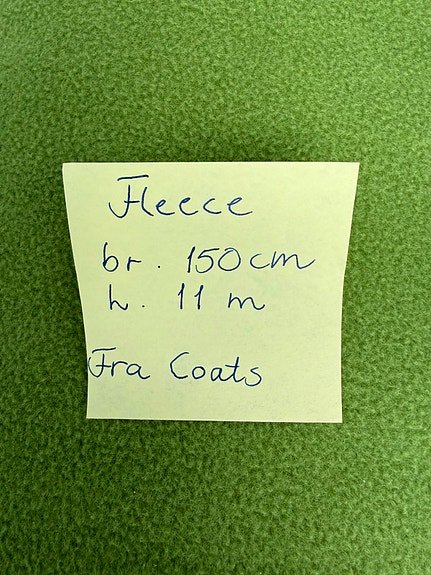 Fleece
br. 150 cm
h. 11 m
Fra Coats